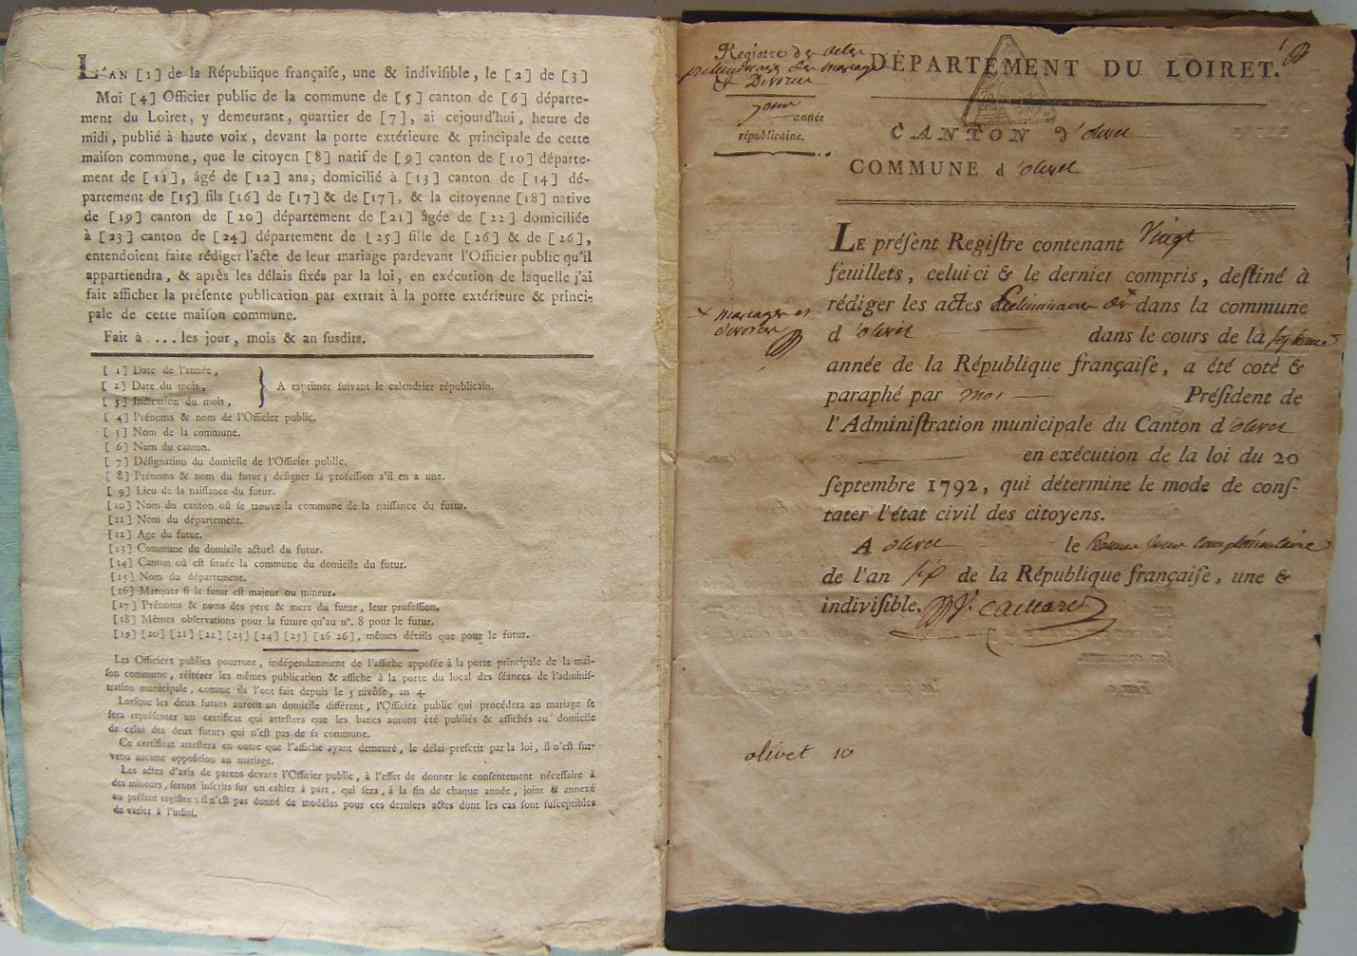 L'AN [1] de la Républiique françaiſe, une & indiviſible, le [2] de [3]
Moi [4] Officier public de la commune de [5] canton de [6] départe-
ment du Loiret, y demeurant, quartier de [7], ai cejourd'hui, heure de
midi, publié à haute voix, devant la porte extérieure & principale de cette
maiſon commune, que le citoyen [8] natif de [9] canton de [10] départe-
ment de [11], âgé de [12] ans, domicilié à [13] canton de [14] dé-
partement de [15] fils [16] de [17] & de [17], & la citoyenne [18] native
de [19] canton de [20] département de [21] âgée de [22] domiciliée
à [23] canton de [24] département de [25] fille de [26] & de [26],
entendoient faire rédiger l'acte de leur mariage pardevant l'Officier public qu'il
appartiendra, & après les délais fixés par la loi, en exécution de laquelle j'ai
fait afficher la préſente publication par extrait à la porte extérieure & princi-
pale de cette maiſon commune.
Fait à ... les jour, mois & an ſusdits.
[ 1] Date de l'année,
[ 2] Date du mois,
[ 3] Indication du mois,
A exprimer ſuivant le calendrier républicain.
[ 4] Prénoms & nom de l'Officier public.
[ 5] Nom de la commune.
[ 6] Nom du canton.
[ 7] Déſignation du domicile de l'Officier public.
[ 8] Prénoms & nom du futur; déſigner ſa profeſſion s'il en a une.
[ 9] Lieu de la naiſſance du futur.
[10] Nom du canton où ſe trouve la commune de la naiſſance du futur.
[11] Nom du département.
[12] Age du futur.
[13] Commune du domicile actuel du futur.
[14] Canton où eſt ſituée la commune du domicile du futur.
[15] Nom du département.
[16] Marquer ſi le futur eſt majeur ou mineur.
[17] Prénoms & noms des pere & mere du futur, leur profeſſion.
[18] Mêmes obſervations pour la future qu'au n°. 8 pour le futur.
[19] [20] [21] [22] [23] [24] [25] [16 26], mêmes détails que pour le futur.
Les Officiers publics pourront, indépendamment de l'affiche appoſée à la porte principale de la mai-
ſon commune, réitérer les mêmes publication & affiche à la porte du local des ſéances de l'adminiſ-
tration municipale, comme ils l'ont fait depuis le 5 nivôſe, an 4.
Lorſque les deux futurs auront un domicile différent, l'Officier public qui procédera au mariage ſe
fera repréſenter un certificat qui atteſtera que les bancs auront été publiés & affichés au domicile
de celui des deux futurs qui n'eſt pas de ſa commune.
Ce certificat atteſtera en outre que l'affiche ayant demeuré, le délai preſcrit par la loi, il n'eſt ſur-
venu aucune oppoſition au mariage.
Les actes d'avis de parens devant l'Officier public, à l'effet de donner le conſentement néceſſaire à
des mineurs, ſeront inſcrits ſur un cahier à part, qui ſera, à la fin de chaque année, joint & annexé
au préſent regiſtre; il n'eſt pas donné de modèles pour ces derniers actes dont les cas ſont ſuſceptibles
de varier à l'infini.
Registre des actes
préliminaires de mariage
& Divorce
7eme
année
républicaine.
DÉPARTEMENT DU LOIRET.
CANTON d'olivet
COMMUNE d'olivet
LE préſent Regiſtre contenant Vingt
feuillets, celui ci & le dernier compris, deſtiné à
rédiger les actes préliminaires de dans la commune
mariages et
divorces
d'olivet dans le cours de la septieme
année de la République françaiſe, a été coté &
paraphé par moi Préſident de
l'Adminiſtration municipale du Canton d'olivet
en exécution de la loi du 20
ſeptembre 1792, qui détermine le mode de conſ-
tater l'état civil des citoyens.
A olivet le Premier jour complémentaire
de l'an six de la République françaiſe, une &
indiviſible.
olivet 10